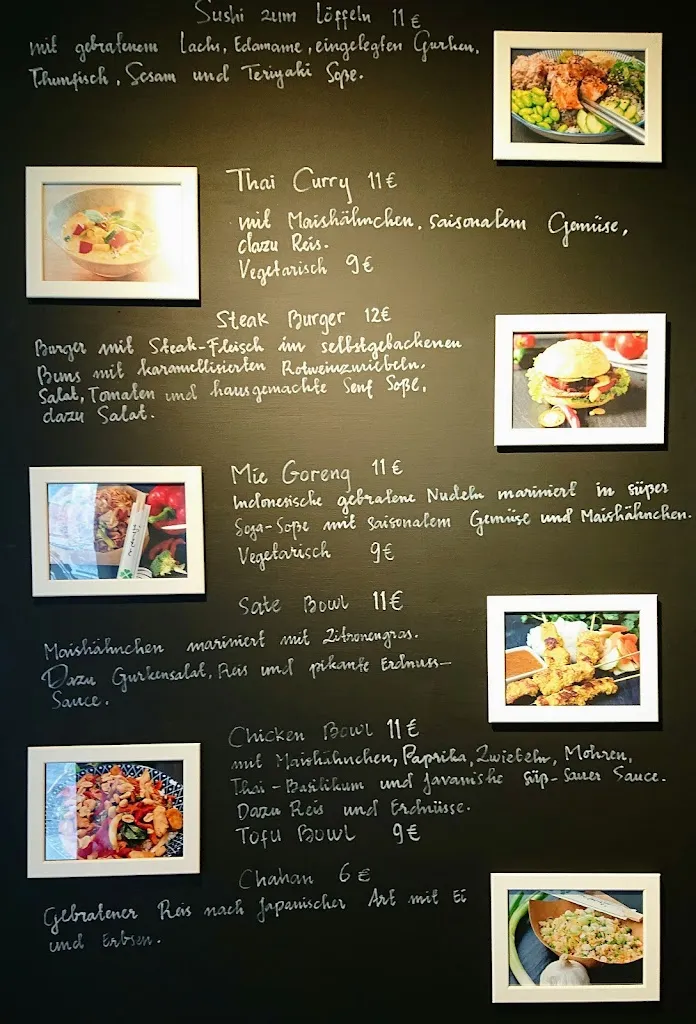 Sushi zum Löffeln 11€
mit gebratenem Lachs, Edamame, eingelegten Gurken,
Thunfisch, Sesam und Teriyaki Soße.
Thai Curry 11€
mit Maishähnchen, saisonalem Gemüse,
dazu Reis.
Vegetarisch 9€
Steak Burger 12€
Burger mit Steak-Fleisch im selbstgebackenen
Buns mit karamellisierten Rotweinzwiebeln.
Salat, Tomaten und hausgemachte Senf Soße,
dazu Salat.
Mie Goreng 11€
Indonesische gebratene Nudeln mariniert in süßer
Soja-Soße mit saisonalem Gemüse und Maishähnchen.
Vegetarisch 9€
Sate Bowl 11€
Maishähnchen mariniert mit Zitronengras.
Dazu Gurkensalat, Reis und pikante Erdnuss-
Sauce.
Chicken Bowl 11€
mit Maishähnchen, Paprika, Zwiebeln, Möhren,
Thai-Basilikum und Javanishe süß-saurer Sauce.
Dazu Reis und Erdnüsse.
Tofu Bowl 9€
Chahan 6€
Gebratener Reis nach Japanischer Art mit Ei
und Erbsen.